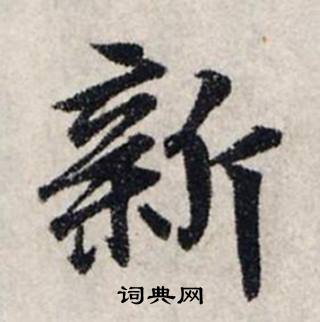 新
词典网